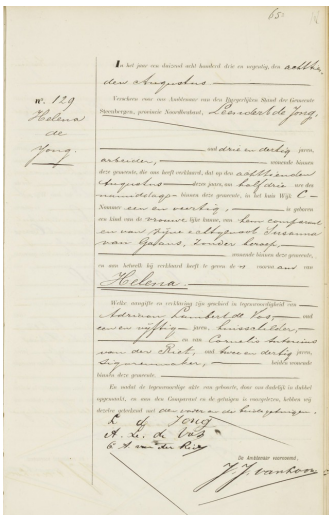 65
In het jaar een duizend acht honderd drie en negentig, den achttien
den Augustus
Verscheen voor ons Ambtenaar van den Burgerlijken Stand der Gemeente
Steenbergen, provincie Noordbrabant, Leendert de Jong,
No. 129
Helena
de
Jong.
oud drie en dertig jaren,
arbeider, wonende binnen
deze gemeente, die ons heeft verklaard, dat op den achttienden
Augustus dezes jaars, om half drie ure des
namiddags binnen deze gemeente, in het huis Wijk C
Nummer een en veertig, is geboren
een kind van de vrouwelijke kunne, van hem comparant
en van zijne echtgenoot Susanna
van Gaans, zonder beroep,
wonende binnen deze gemeente,
en aan hetwelk hij verklaard heeft te geven den voornaam van
Helena.
Welke aangifte en verklaring zijn geschied in tegenwoordigheid van
Adriaan Lambert de Vos, oud
een en vijftig jaren, huisschilder,
en van Cornelis Antonius
van der Riet, oud twee en dertig jaren,
sigarenmaker, beiden wonende
binnen deze gemeente.
En nadat de tegenwoordige akte was gelezen, door ons dadelijk in dubbel
opgemaakt, en aan den Comparant en de getuigen is voorgelezen, hebben wij
dezelve geteekend met den vader en de beide getuigen.
L d Jong
A. L. de Vos
C A van der Riet
De Ambtenaar voornoemd,
J. J. van Loon